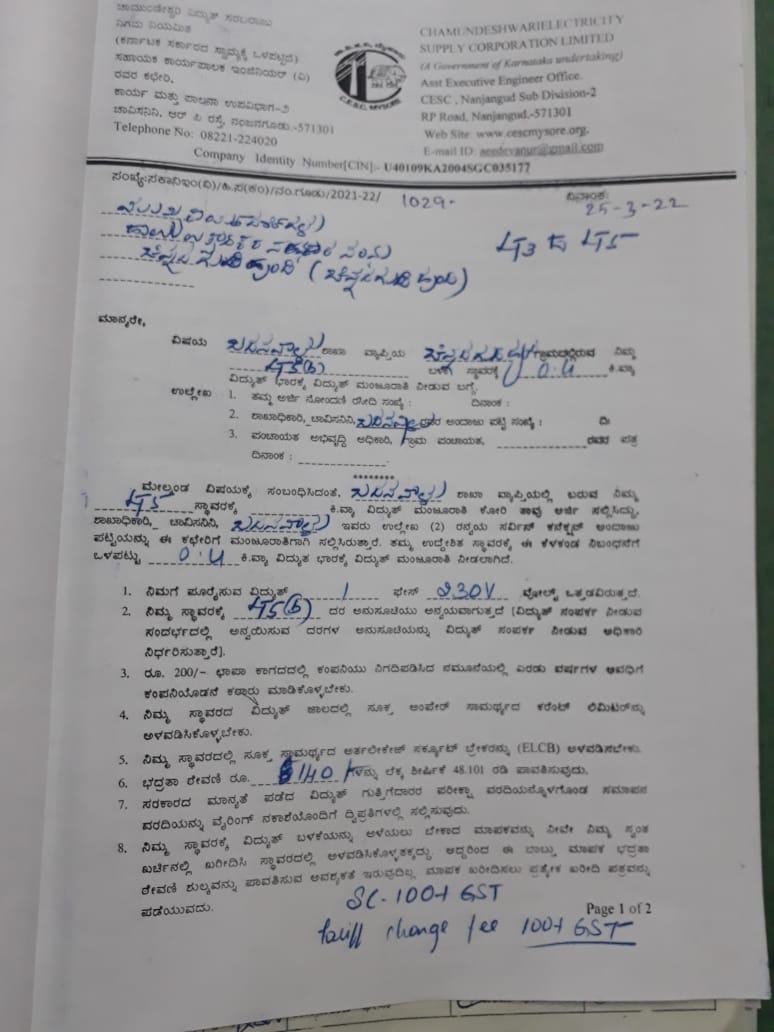 ಚಾಮುಂಡೇಶ್ವರಿ ವಿದ್ಯುತ್ ಸರಬರಾಜು
ನಿಗಮ ನಿಯಮಿತ
(ಕರ್ನಾಟಕ ಸರ್ಕಾರದ ಸ್ವಾಮ್ಯಕ್ಕೆ ಒಳಪಟ್ಟಿದೆ)
ಸಹಾಯಕ ಕಾರ್ಯಪಾಲಕ ಇಂಜಿನಿಯರ್ (ವಿ)
ರವರ ಕಛೇರಿ,
ಕಾರ್ಯ ಮತ್ತು ಪಾಲನಾ ಉಪವಿಭಾಗ-೨
ಚಾವಿಸನಿನಿ, ಆರ್ ಪಿ ರಸ್ತೆ, ನಂಜನಗೂಡು.-571301
Telephone No: 08221-224020
C.E.S.C. MYSORE
CHAMUNDESHWARIELECTRICITY
SUPPLY CORPORATION LIMITED
(A Government of Karnataka undertaking)
Asst Executive Engineer Office.
CESC , Nanjangud Sub Division-2
RP Road, Nanjangud.-571301
Web Site: www.cescmysore.org,
E-mail ID: aeedevanur@gmail.com
Company Identity Number[CIN]:- U40109KA2004SGC035177
ಸಂಖ್ಯೆ:ಸಕಾನಿಇಂ(ವಿ)/ಹಿ.ಸ(ಕಂ)/ನಂ.ಗೂಡು/2021-22/ 1029- ದಿನಾಂಕ: 25-3-22
LT3 ಟು LT5
ಮಾನ್ಯರೇ,
ವಿಷಯ ಬದನವಾಳು ಶಾಖಾ ವ್ಯಾಪ್ತಿಯ ಗ್ರಾಮದಲ್ಲಿರುವ ನಿಮ್ಮ
LT5(b) ಬಳಕೆ ಸ್ಥಾವರಕ್ಕೆ 0.4 ಕಿ.ವ್ಯಾ
ವಿದ್ಯುತ್ ಭಾರಕ್ಕೆ ವಿದ್ಯುತ್ ಮಂಜೂರಾತಿ ನೀಡುವ ಬಗ್ಗೆ.
ಉಲ್ಲೇಖ 1. ತಮ್ಮ ಅರ್ಜಿ ನೋಂದಣಿ ರಶೀದಿ ಸಂಖ್ಯೆ : ದಿನಾಂಕ :
2. ಶಾಖಾಧಿಕಾರಿ, ಚಾವಿಸನಿನಿ, ಬದನವಾಳು ರವರ ಅಂದಾಜು ಪಟ್ಟಿ ಸಂಖ್ಯೆ : ದಿ:
3. ಪಂಚಾಯತ ಅಭಿವೃದ್ಧಿ ಅಧಿಕಾರಿ, ಗ್ರಾಮ ಪಂಚಾಯತ, ರವರ ಪತ್ರ
ದಿನಾಂಕ :
********
ಮೇಲ್ಕಂಡ ವಿಷಯಕ್ಕೆ ಸಂಬಂಧಿಸಿದಂತೆ, ಬದನವಾಳು ಶಾಖಾ ವ್ಯಾಪ್ತಿಯಲ್ಲಿ ಬರುವ ನಿಮ್ಮ
LT5 ಸ್ಥಾವರಕ್ಕೆ ಕಿ.ವ್ಯಾ ವಿದ್ಯುತ್ ಮಂಜೂರಾತಿ ಕೋರಿ ತಾವು ಅರ್ಜಿ ಸಲ್ಲಿಸಿದ್ದು,
ಶಾಖಾಧಿಕಾರಿ, ಚಾವಿಸನಿನಿ, ಬದನವಾಳು ಇವರು ಉಲ್ಲೇಖ (2) ರನ್ವಯ ಸರ್ವಿಸ್ ಕನೆಕ್ಷನ್ ಅಂದಾಜು
ಪಟ್ಟಿಯನ್ನು ಈ ಕಛೇರಿಗೆ ಮಂಜೂರಾತಿಗಾಗಿ ಸಲ್ಲಿಸಿರುತ್ತಾರೆ. ತಮ್ಮ ಉದ್ದೇಶಿತ ಸ್ಥಾವರಕ್ಕೆ ಈ ಕೆಳಕಂಡ ನಿಬಂಧನೆಗೆ
ಒಳಪಟ್ಟು 0.4 ಕಿ.ವ್ಯಾ ವಿದ್ಯುತ ಭಾರಕ್ಕೆ ವಿದ್ಯುತ್ ಮಂಜೂರಾತಿ ನೀಡಲಾಗಿದೆ.
1. ನಿಮಗೆ ಪೂರೈಸುವ ವಿದ್ಯುತ್ 1 ಫೇಸ್ 230V ವೋಲ್ಟ್ ಒತ್ತಡವಿರುತ್ತದೆ.
2. ನಿಮ್ಮ ಸ್ಥಾವರಕ್ಕೆ LT5(b) ದರ ಅನುಸೂಚಿಯು ಅನ್ವಯವಾಗುತ್ತದೆ [ವಿದ್ಯುತ್ ಸಂಪರ್ಕ ನೀಡುವ
ಸಂದರ್ಭದಲ್ಲಿ ಅನ್ವಯಿಸುವ ದರಗಳ ಅನುಸೂಚಿಯನ್ನು ವಿದ್ಯುತ್ ಸಂಪರ್ಕ ನೀಡುವ ಅಧಿಕಾರಿ
ನಿರ್ಧರಿಸುತ್ತಾರೆ].
3. ರೂ. 200/- ಛಾಪಾ ಕಾಗದದಲ್ಲಿ ಕಂಪನಿಯು ನಿಗದಿಪಡಿಸಿದ ನಮೂನೆಯಲ್ಲಿ ಎರಡು ವರ್ಷಗಳ ಅವಧಿಗೆ
ಕಂಪನಿಯೊಡನೆ ಕರಾರು ಮಾಡಿಕೊಳ್ಳಬೇಕು.
4. ನಿಮ್ಮ ಸ್ಥಾವರದ ವಿದ್ಯುತ್ ಜಾಲದಲ್ಲಿ ಸೂಕ್ತ ಅಂಪೇರ್ ಸಾಮರ್ಥ್ಯದ ಕರೆಂಟ್ ಲಿಮಿಟರ್‌ನ್ನು
ಅಳವಡಿಸಿಕೊಳ್ಳಬೇಕು.
5. ನಿಮ್ಮ ಸ್ಥಾವರದಲ್ಲಿ ಸೂಕ್ತ ಸಾಮರ್ಥ್ಯದ ಅರ್ತಲೀಕೇಜ್ ಸರ್ಕ್ಯೂಟ್ ಬ್ರೇಕರನ್ನು (ELCB) ಅಳವಡಿಸಬೇಕು.
6. ಭದ್ರತಾ ಠೇವಣಿ ರೂ. 140/ ಗಳನ್ನು ಲೆಕ್ಕ ಶೀರ್ಷಿಕೆ 48.101 ರಡಿ ಪಾವತಿಸುವುದು.
7. ಸರಕಾರದ ಮಾನ್ಯತೆ ಪಡೆದ ವಿದ್ಯುತ್ ಗುತ್ತಿಗೆದಾರರ ಪರೀಕ್ಷಾ ವರದಿಯನ್ನೊಳಗೊಂಡ ಸಮಾಪನ
ವರದಿಯನ್ನು ವೈರಿಂಗ್ ನಕಾಶೆಯೊಂದಿಗೆ ದ್ವಿಪ್ರತಿಗಳಲ್ಲಿ ಸಲ್ಲಿಸುವುದು.
8. ನಿಮ್ಮ ಸ್ಥಾವರಕ್ಕೆ ವಿದ್ಯುತ್ ಬಳಕೆಯನ್ನು ಅಳೆಯಲು ಬೇಕಾದ ಮಾಪಕವನ್ನು ನೀವೇ ನಿಮ್ಮ ಸ್ವಂತ
ಖರ್ಚಿನಲ್ಲಿ ಖರೀದಿಸಿ ಸ್ಥಾವರದಲ್ಲಿ ಅಳವಡಿಸಿಕೊಳ್ಳತಕ್ಕದ್ದು. ಆದ್ದರಿಂದ ಈ ಬಾಬ್ತು ಮಾಪಕ ಭದ್ರತಾ
ಠೇವಣಿ ಶುಲ್ಕವನ್ನು ಪಾವತಿಸುವ ಅವಶ್ಯಕತೆ ಇರುವುದಿಲ್ಲ. ಮಾಪಕ ಖರೀದಿಸಲು ಪ್ರತ್ಯೇಕ ಖರೀದಿ ಪತ್ರವನ್ನು
ಪಡೆಯುವದು.
SC-100+GST
Page 1 of 2
tariff change fee 100+GST